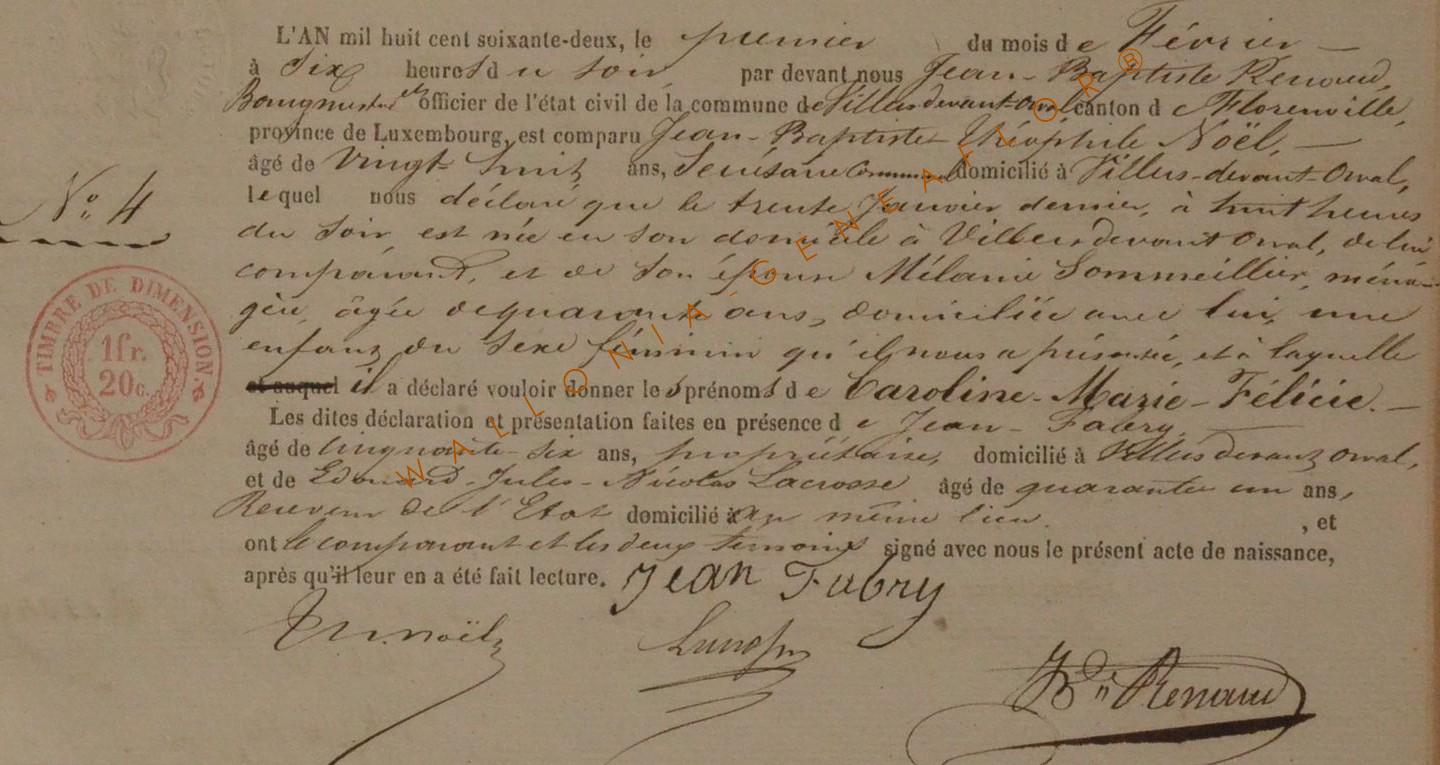 L'AN mil huit cent soixante-deux, le premier du mois de Février —
à Six heures du soir par devant nous Jean-Baptiste Renaud,
Bourgmestre et officier de l'état civil de la commune de Villers devant Orval, canton de Florenville,
province de Luxembourg, est comparu Jean-Baptiste Théophile Noël, —
âgé de Vingt huit ans, Secrétaire Communal domicilié à Villers-devant-Orval,
lequel nous déclaré que le trente Janvier dernier, à huit heures
du soir, est née en son domicile à Villers devant Orval, de lui
comparant, et de son épouse Mélanie Sommeillier, ména-
gère, âgée de quarante ans, domiciliée avec lui, une
enfant du sexe féminin qu'il nous a présentée, et à laquelle
et auquel il a déclaré vouloir donner les prénoms de Caroline-Marie-Félicie. —
Les dites déclaration et présentation faites en présence de Jean-Fabry,
âgé de cinquante-six ans, propriétaire, domicilié à Villers devant Orval,
et de Edouard-Jules-Nicolas Lacrosse âgé de quarante un ans,
Receveur de l'Etat domicilié au même lieu. , et
ont le comparant et les deux témoins signé avec nous le présent acte de naissance,
après qu'il leur en a été fait lecture. Jean Fabry
noël
Renaud
N° 4
TIMBRE DE DIMENSION
1fr.
20c.
WALLONIA GENEAFLORB ®